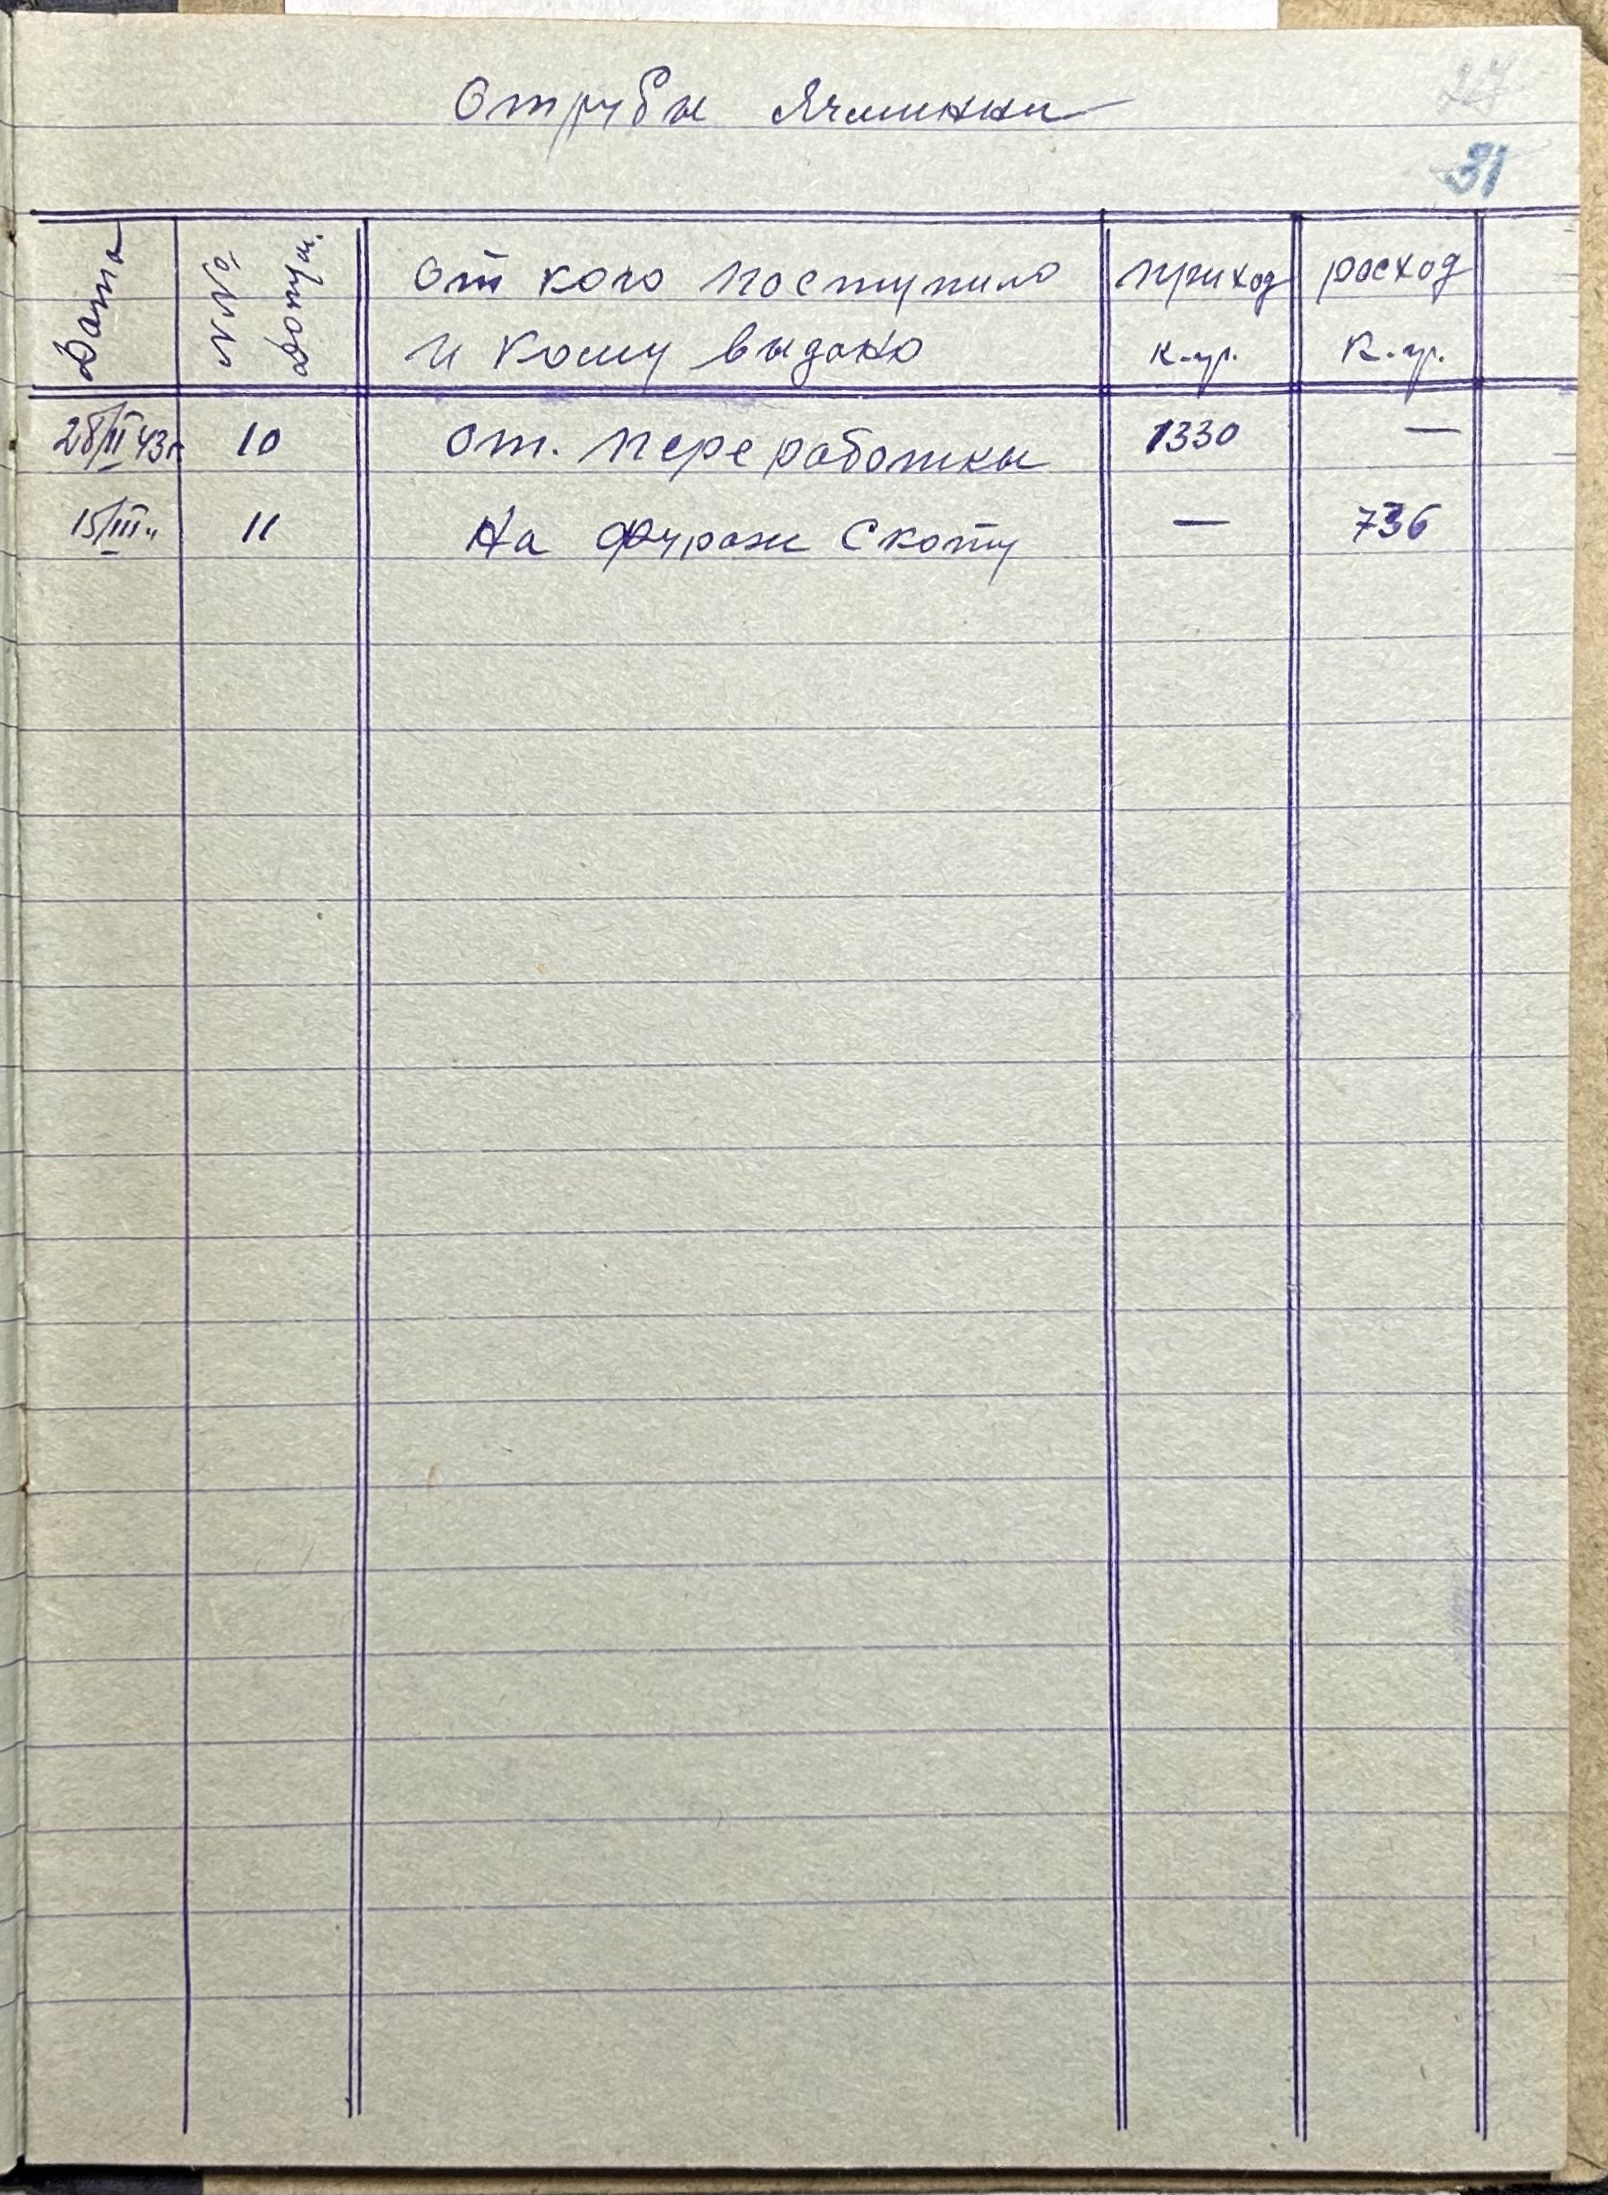 Отрубы Ячминни
27
31
Дата
№№ докум.
От кого поступило и кому выдано
приход к-гр.
расход к-гр.
28/II 43г 10 От. переработки 1330 —
15/III " 11 На фураж скоту — 736